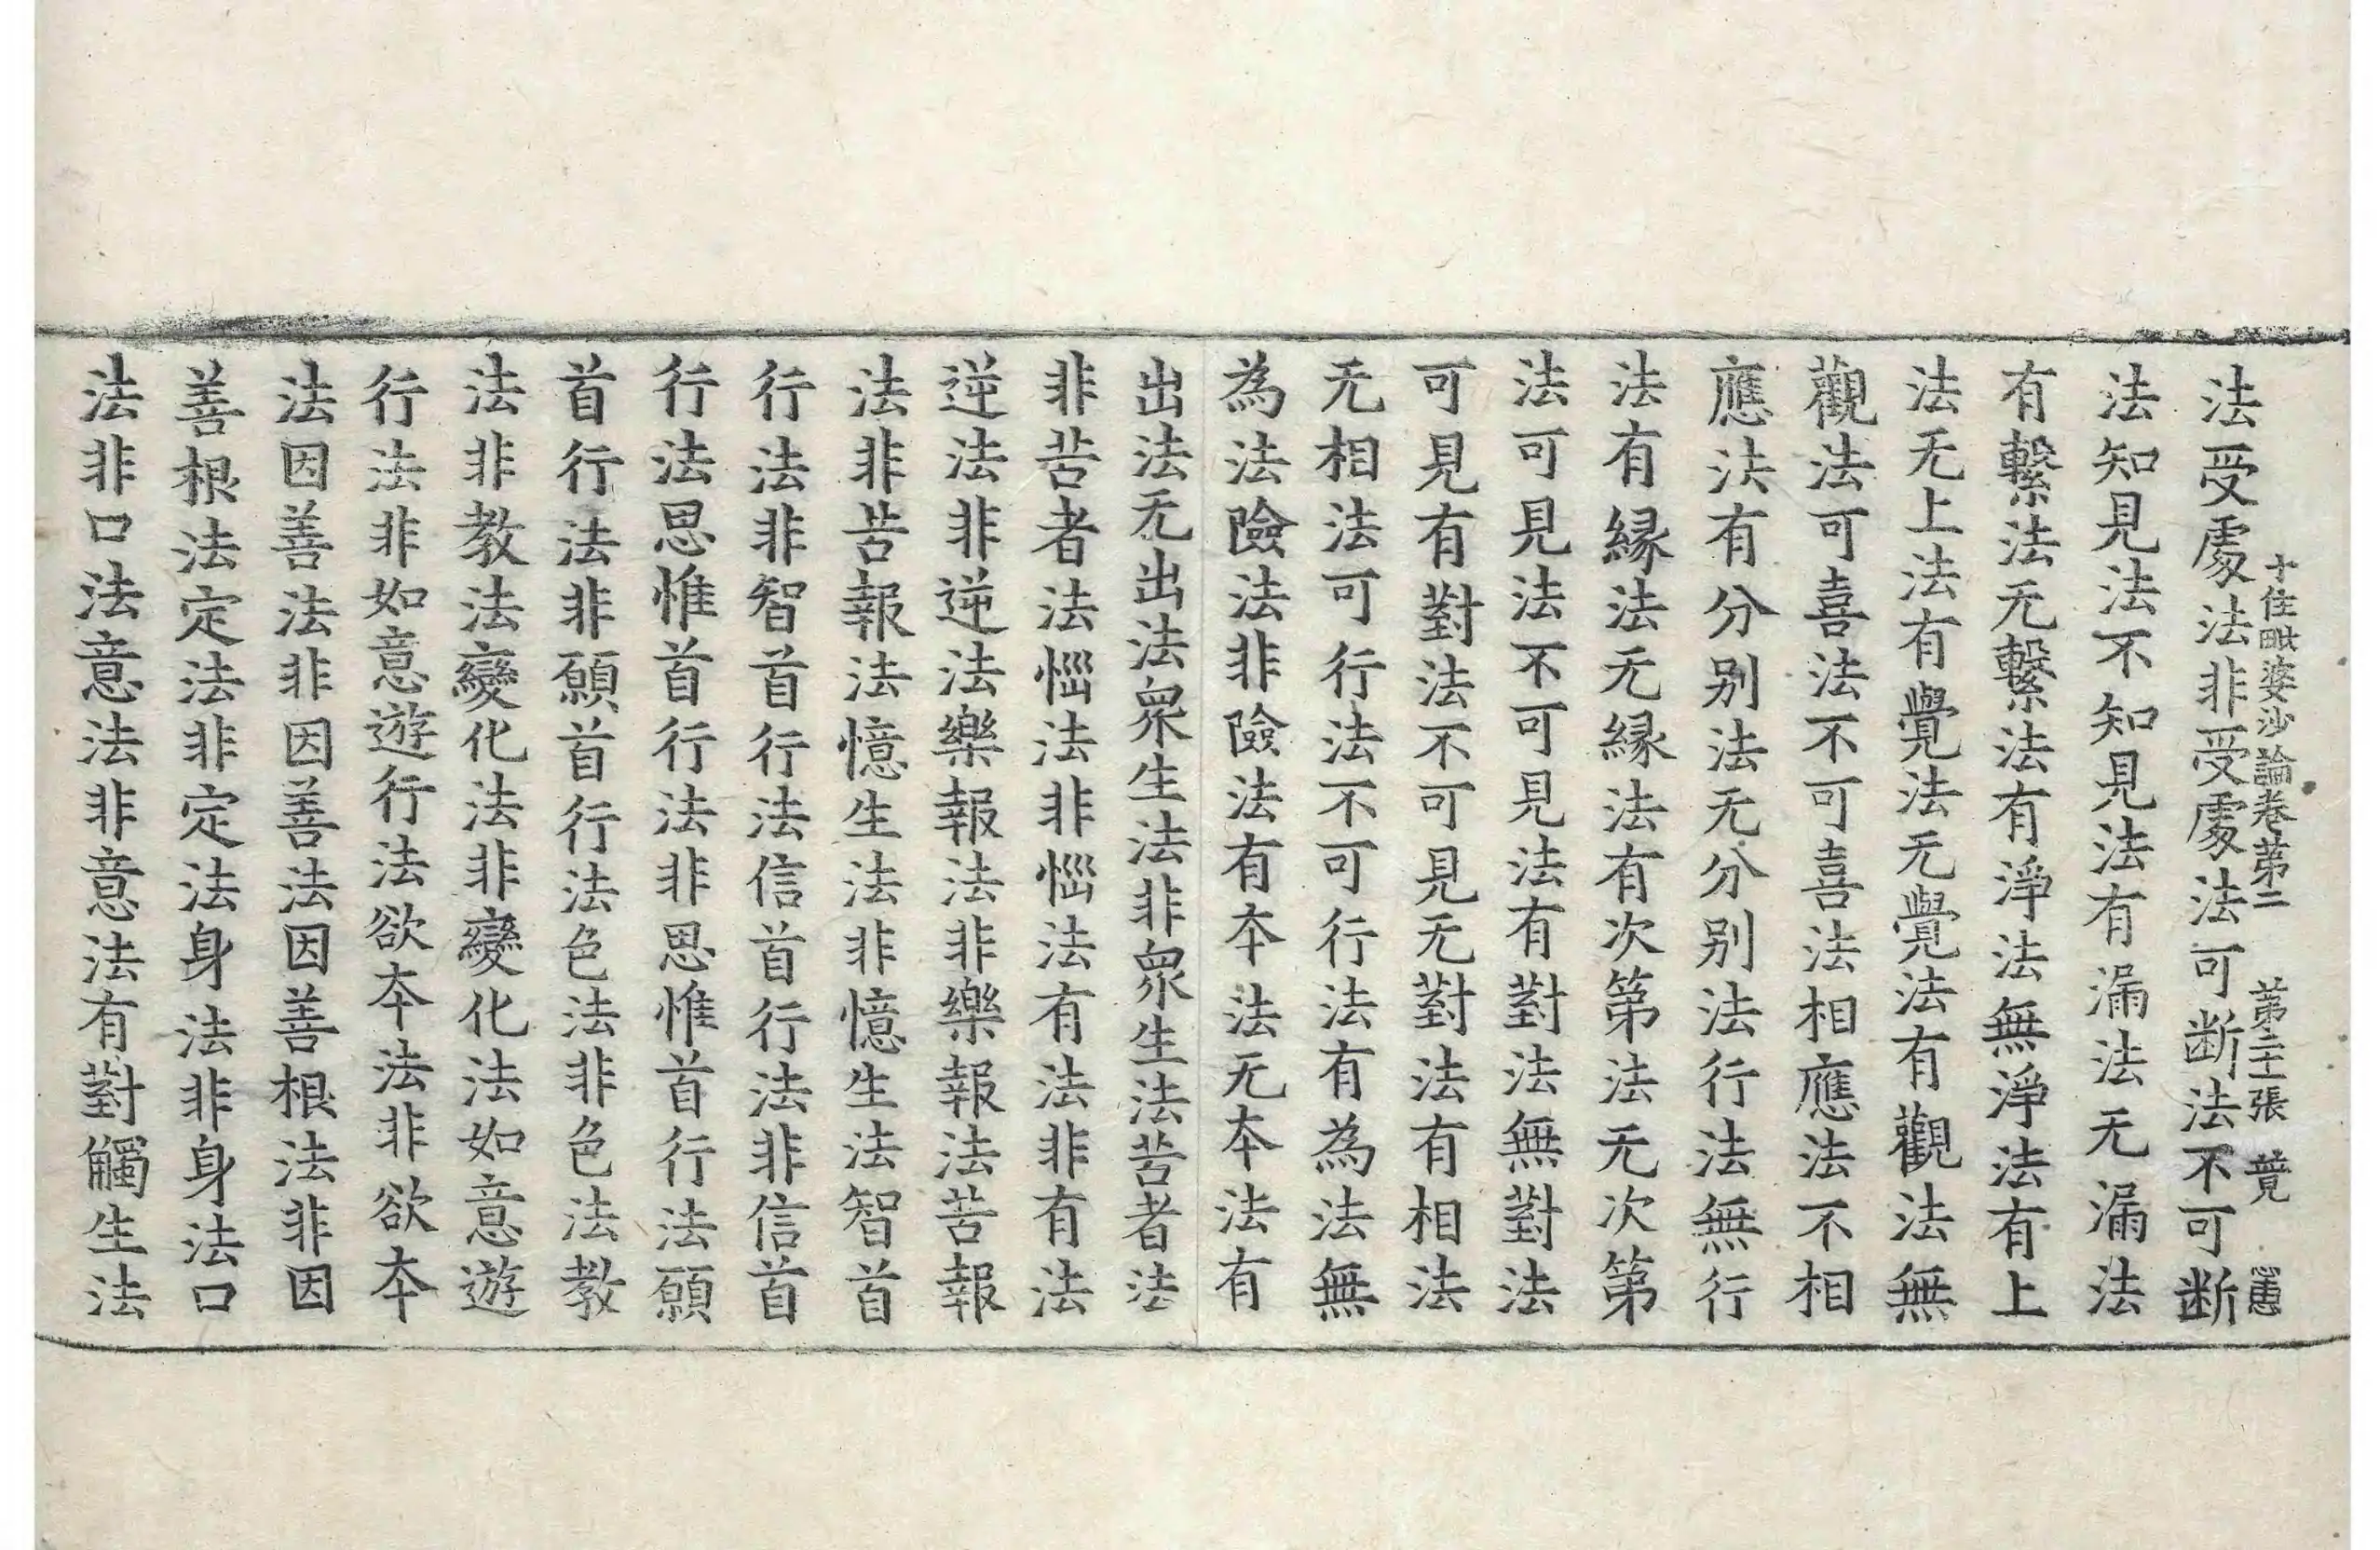 十住毗婆沙論卷苐二　苐二十張
法受處法非受處法可断法不可断
法知見法不知見法有漏法无漏法
有繫法无繫法有淨法無淨法有上
法无上法有覺法无覺法有觀法無
觀法可喜法不可喜法相應法不相
應法有分别法无分别法行法無行
法有縁法无縁法有次第法无次第
法可見法不可見法有對法無對法
可見有對法不可見无對法有相法
无相法可行法不可行法有為法無
為法險法非險法有夲法无夲法有
出法无出法眾生法非眾生法苦者法
非苦者法惱法非惱法有法非有法
逆法非逆法樂報法非樂報法苦報
法非苦報法憶生法非憶生法智首
行法非智首行法信首行法非信首
行法思惟首行法非思惟首行法願
首行法非願首行法色法非色法教
法非教法變化法非變化法如意遊
行法非如意遊行法欲夲法非欲夲
法因善法非因善法因善根法非因
善根法定法非定法身法非身法口
法非口法意法非意法有對觸生法